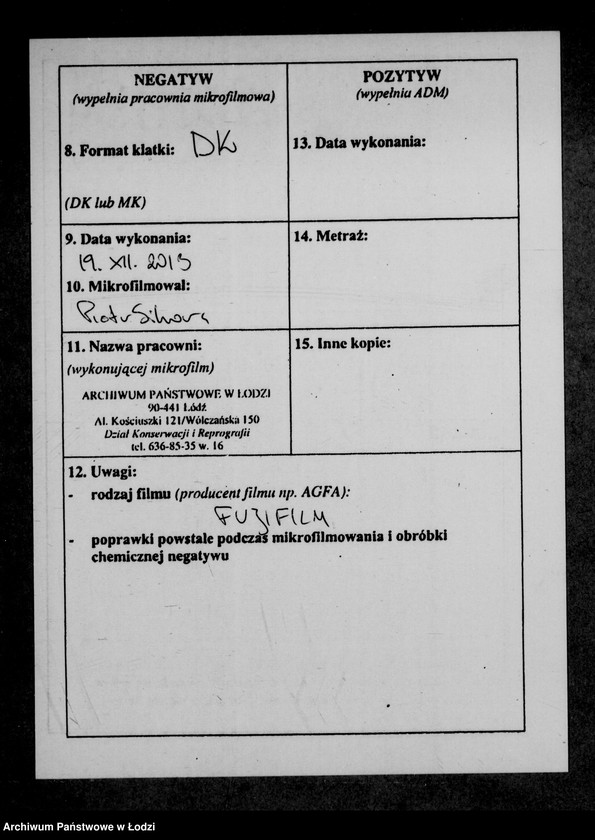 NEGATYW
(wypełnia pracownia mikrofilmowa)
8. Format klatki: DK
(DK lub MK)
9. Data wykonania:
19. XII. 2013
10. Mikrofilmował:
Piotr
11. Nazwa pracowni:
(wykonującej mikrofilm)
ARCHIWUM PAŃSTWOWE W ŁODZI
90-441 Łódź
Al. Kościuszki 121/Wólczańska 150
Dział Konserwacji i Reprografii
tel. 636-85-35 w. 16
POZYTYW
(wypełnia ADM)
13. Data wykonania:
14. Metraż:
15. Inne kopie:
12. Uwagi:
- rodzaj filmu (producent filmu np. AGFA):
FUJIFILM
- poprawki powstałe podczas mikrofilmowania i obróbki
chemicznej negatywu
Archiwum Państwowe w Łodzi